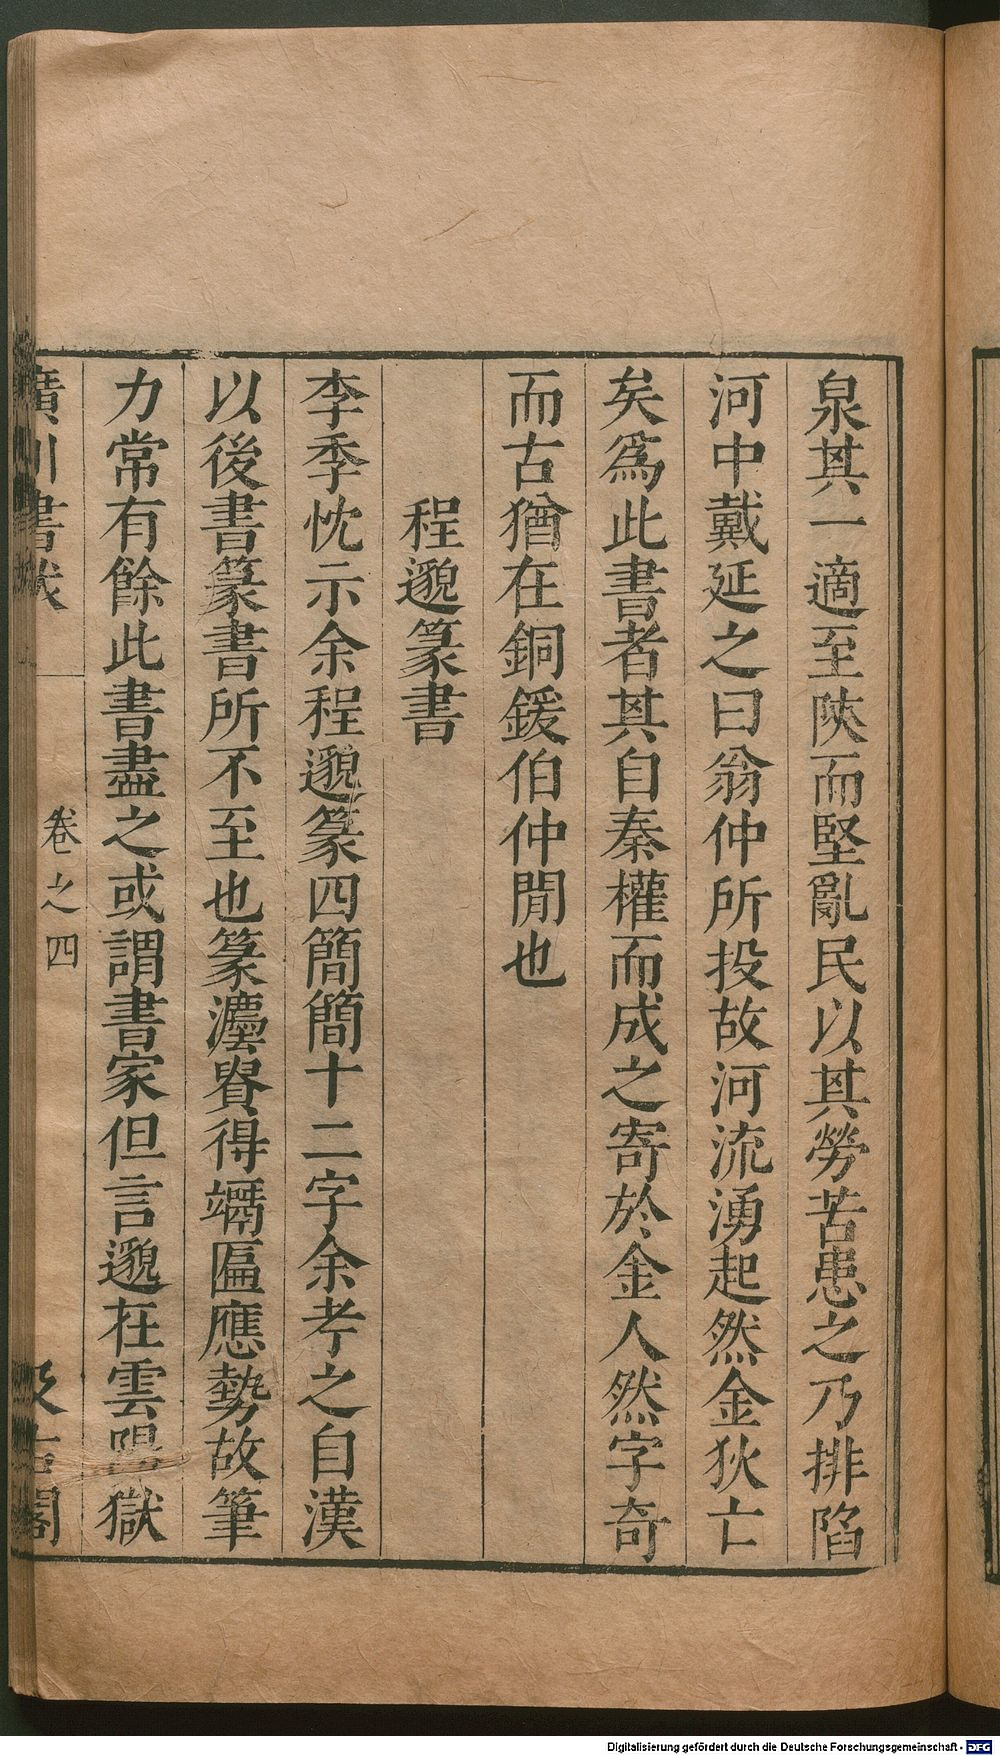 泉其一適至陜而堅亂民以其勞苦患之乃排陷
河中戴延之曰翁仲所投故河流湧起然金狄亡
矣爲此書者其自秦權而成之寄於金人然字奇
而古猶在銅鍰伯仲閒也
程邈篆書
李季忱示余程邈篆四簡簡十二字余考之自漢
以後書篆書所不至也篆灋貴得端匾應勢故筆
力常有餘此書盡之或謂書家但言邈在雲陽獄
廣川書跋
卷之四
汲古閣
Digitalisierung gefördert durch die Deutsche Forschungsgemeinschaft - DFG